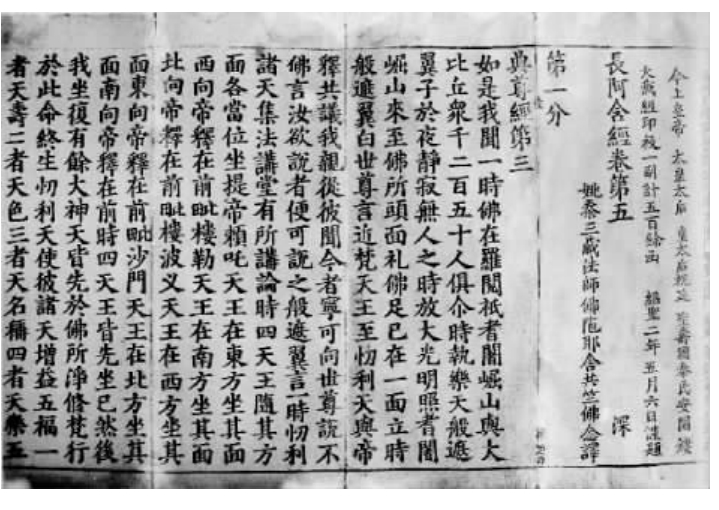 今上皇帝 太皇太后 皇太后 聖壽國泰民安
大藏經印板一副計五百餘函 紹聖二年五月六日謹題
長阿含經卷第五 深
姚秦三藏法師佛陁耶舍共竺佛念譯
第一分
典尊經第三
如是我聞一時佛在羅閱祇耆闍崛山與大
比丘衆千二百五十人俱尒時執樂天般遮
翼子於夜靜寂無人之時放大光明照耆闍
崛山來至佛所頭面礼佛足已在一面立時
般遮翼白世尊言近梵天王至忉利天與帝
釋共議我親從彼聞今者寧可向世尊說不
佛言汝欲說者便可說之般遮翼言一時忉利
諸天集法講堂有所講論時四天王隨其方
面各當位坐提帝頼吒天王在東方坐其面
西向帝釋在前毗樓勒天王在南方坐其面
北向帝釋在前毗樓波叉天王在西方坐其
面東向帝釋在前毗沙門天王在北方坐其
面南向帝釋在前時四天王皆先坐已然後
我坐復有餘大神天皆先於佛所淨修梵行
於此命終生忉利天使彼諸天增益五福一
者天壽二者天色三者天名稱四者天樂五